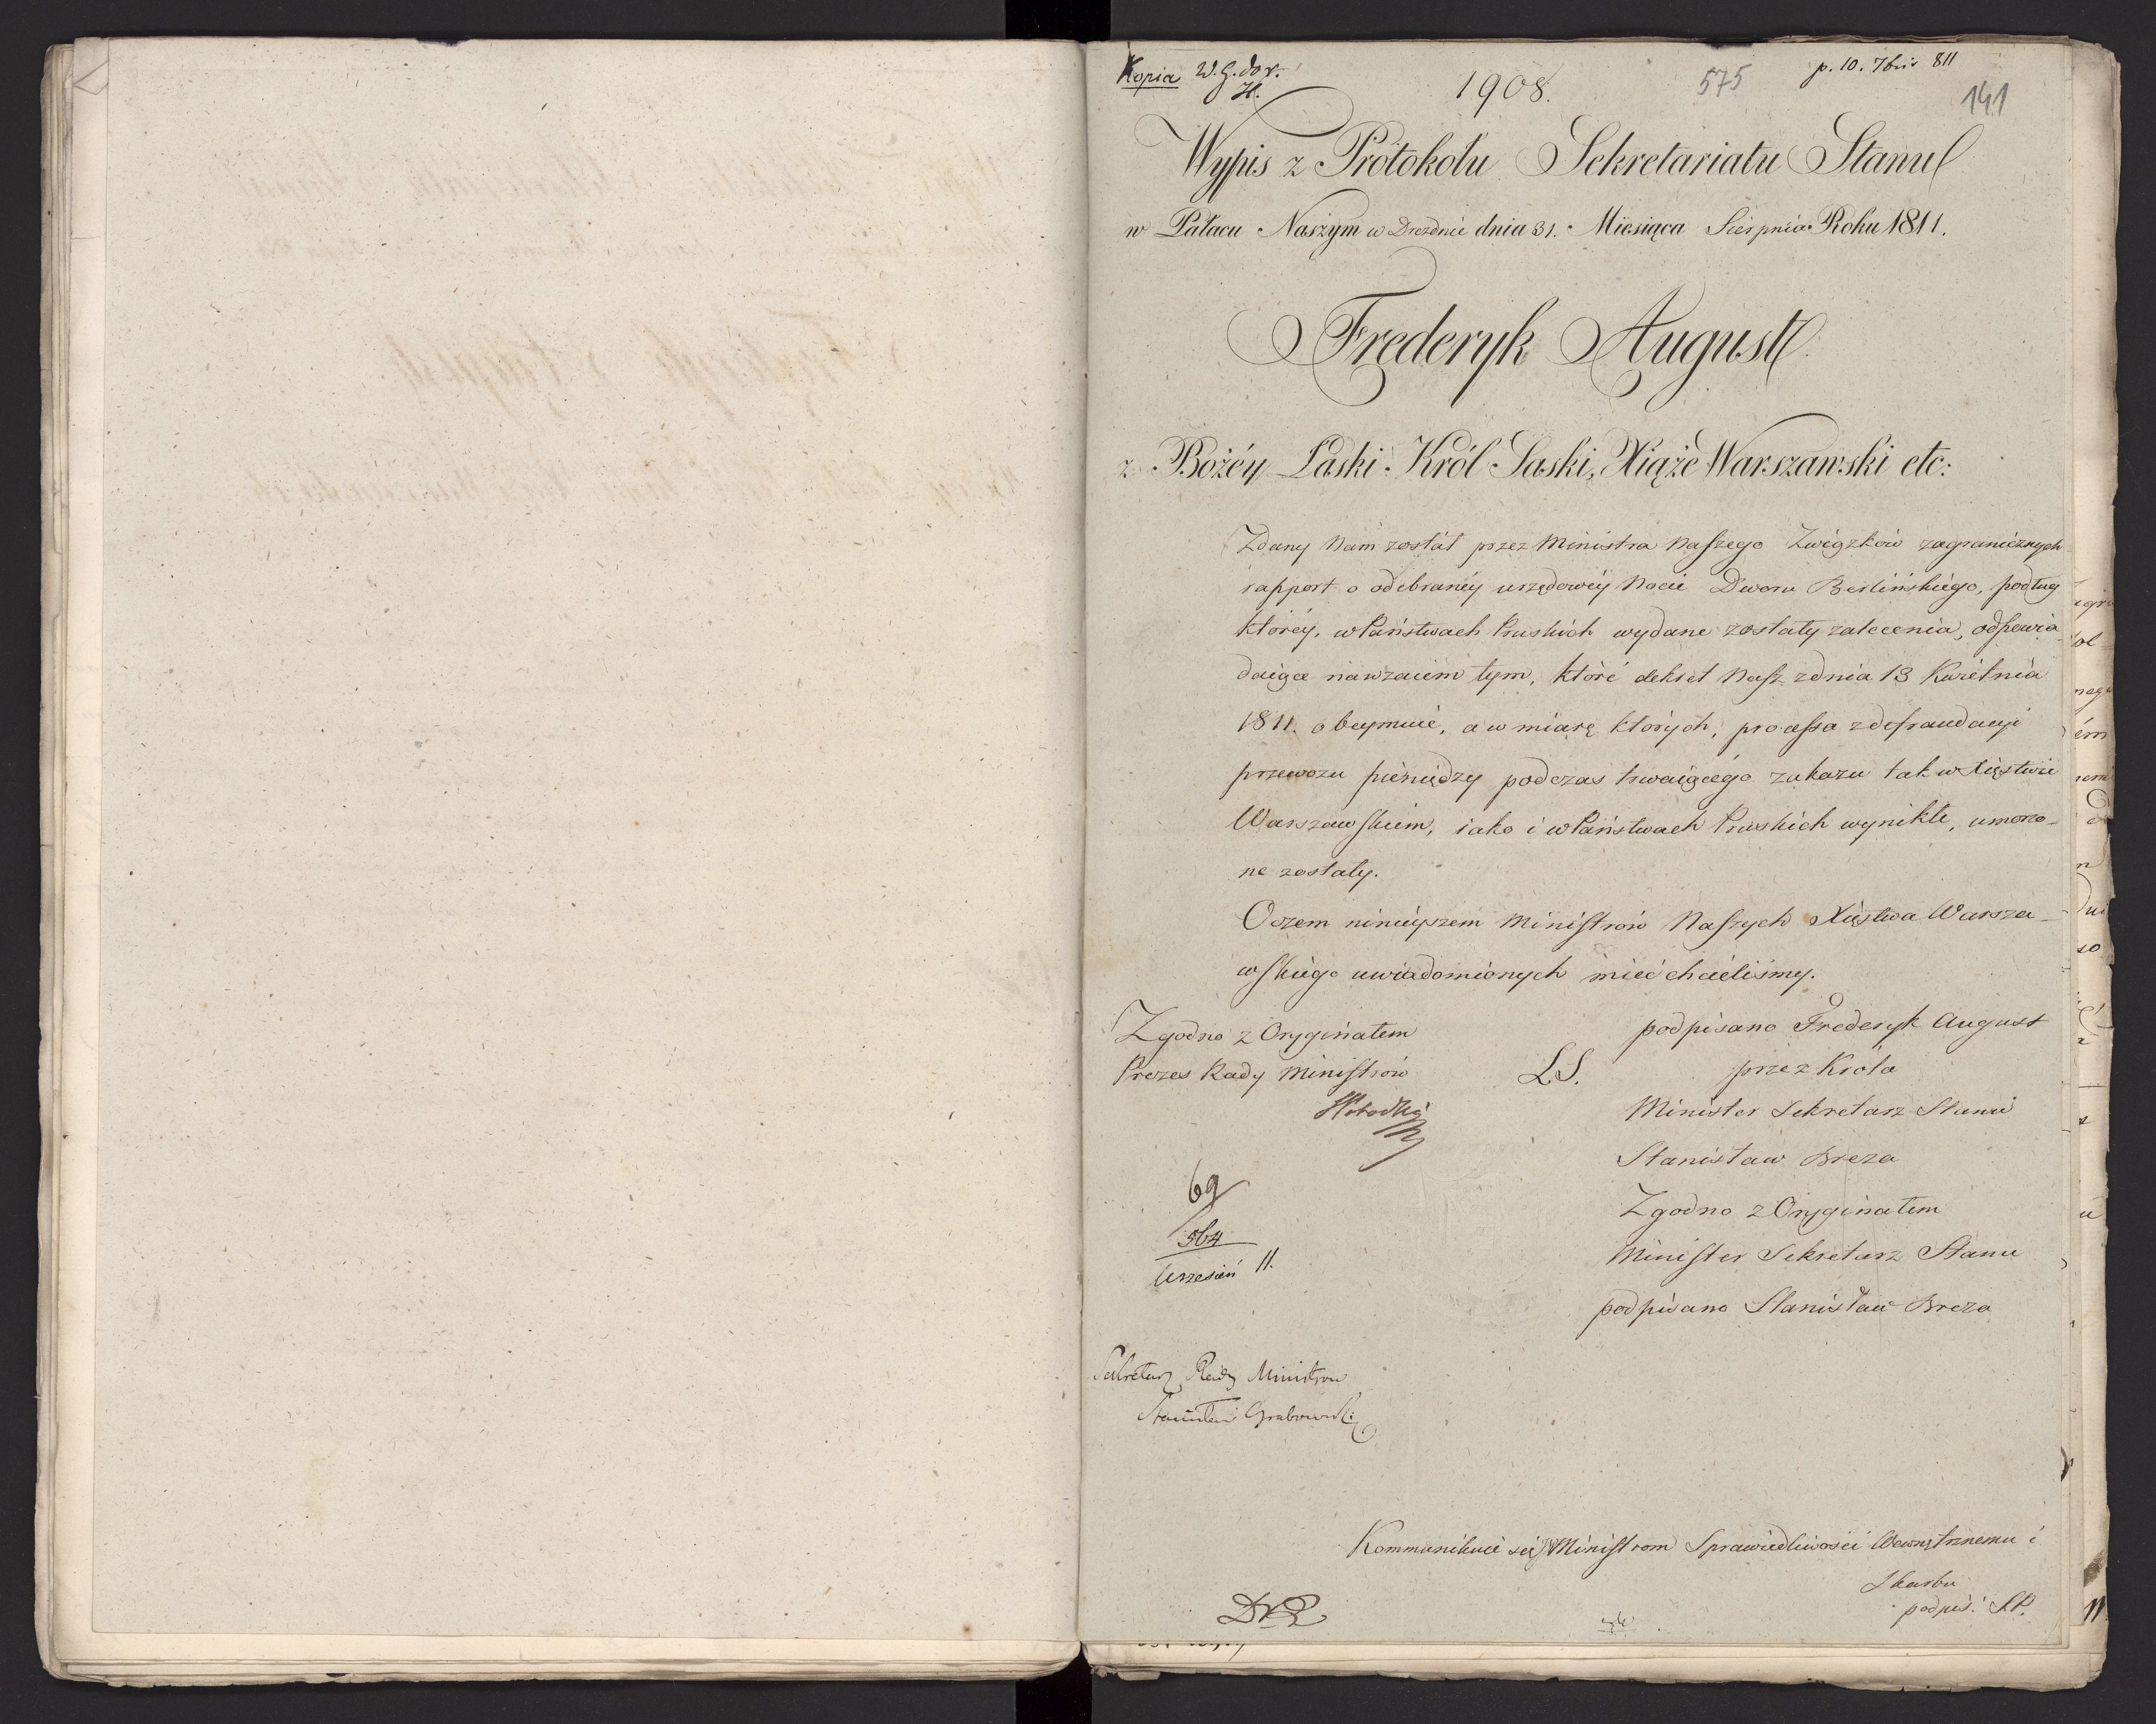 Kopia W. G. do r.
1908.
575
p. 10. 7bris 811
141
Wypis z Protokołu Sekretariatu Stanu
w Pałacu Naszym w Dreźdnie dnia 31. Miesiąca Sierpnia Roku 1811.
Frederyk August
z Bożéy Łaski Król Saski, Xiąże Warszawski etc:
Zdany Nam został przez Ministra Naszego Związków zagranicznych
rapport o odebranéy urzędowéy Nocie Dworu Berlińskiego, podług
któréy, w Państwach Pruskich wydane zostały zalecenia, odpowia-
daiące nawzaiem tym, które dekret Nasz z dnia 13 Kwietnia
1811. obeymuie, a w miarę których, processa z defraudacyi
przewozu pieniędzy podczas trwaiącego zakazu tak w Xięstwie
Warszawskiem, iako i w Państwach Pruskich wynikłe, umorzo-
ne zostały.
O czem ninieyszem Ministrów Naszych Xięstwa Warsza-
wskiego uwiadomionych mieć chcieliśmy.
Zgodno z Oryginałem
Prezes Rady Ministrów
L.S.
podpisano Frederyk August
przez Króla
Minister Sekretarz Stanu
Stanisław Breza
Zgodno z Oryginałem
Minister Sekretarz Stanu
podpisano Stanisław Breza
69
564
Wrzesień 11.
Sekretarz Rady Ministrow
Stanisław Grabowski
Kommunikuie się Ministrom Sprawiedliwości Wewnętrznemu i
Skarbu
podpis. S.P.